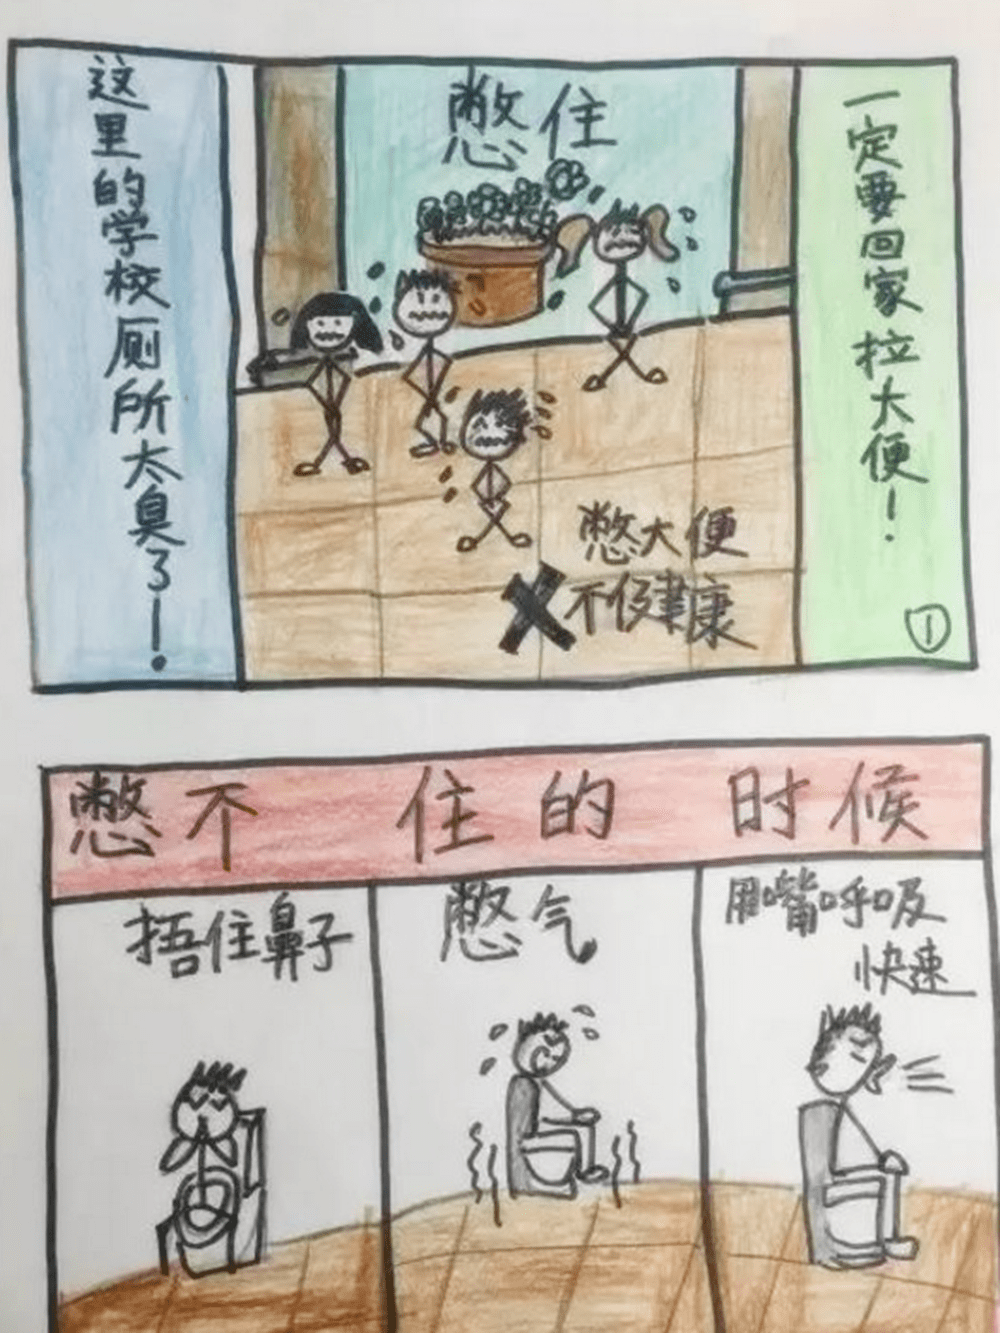 这里的学校厕所太臭了！
憋住
一定要回家拉大便！
憋大便
不健康
①
憋不住的时候
捂住鼻子
憋气
用嘴呼吸
快速